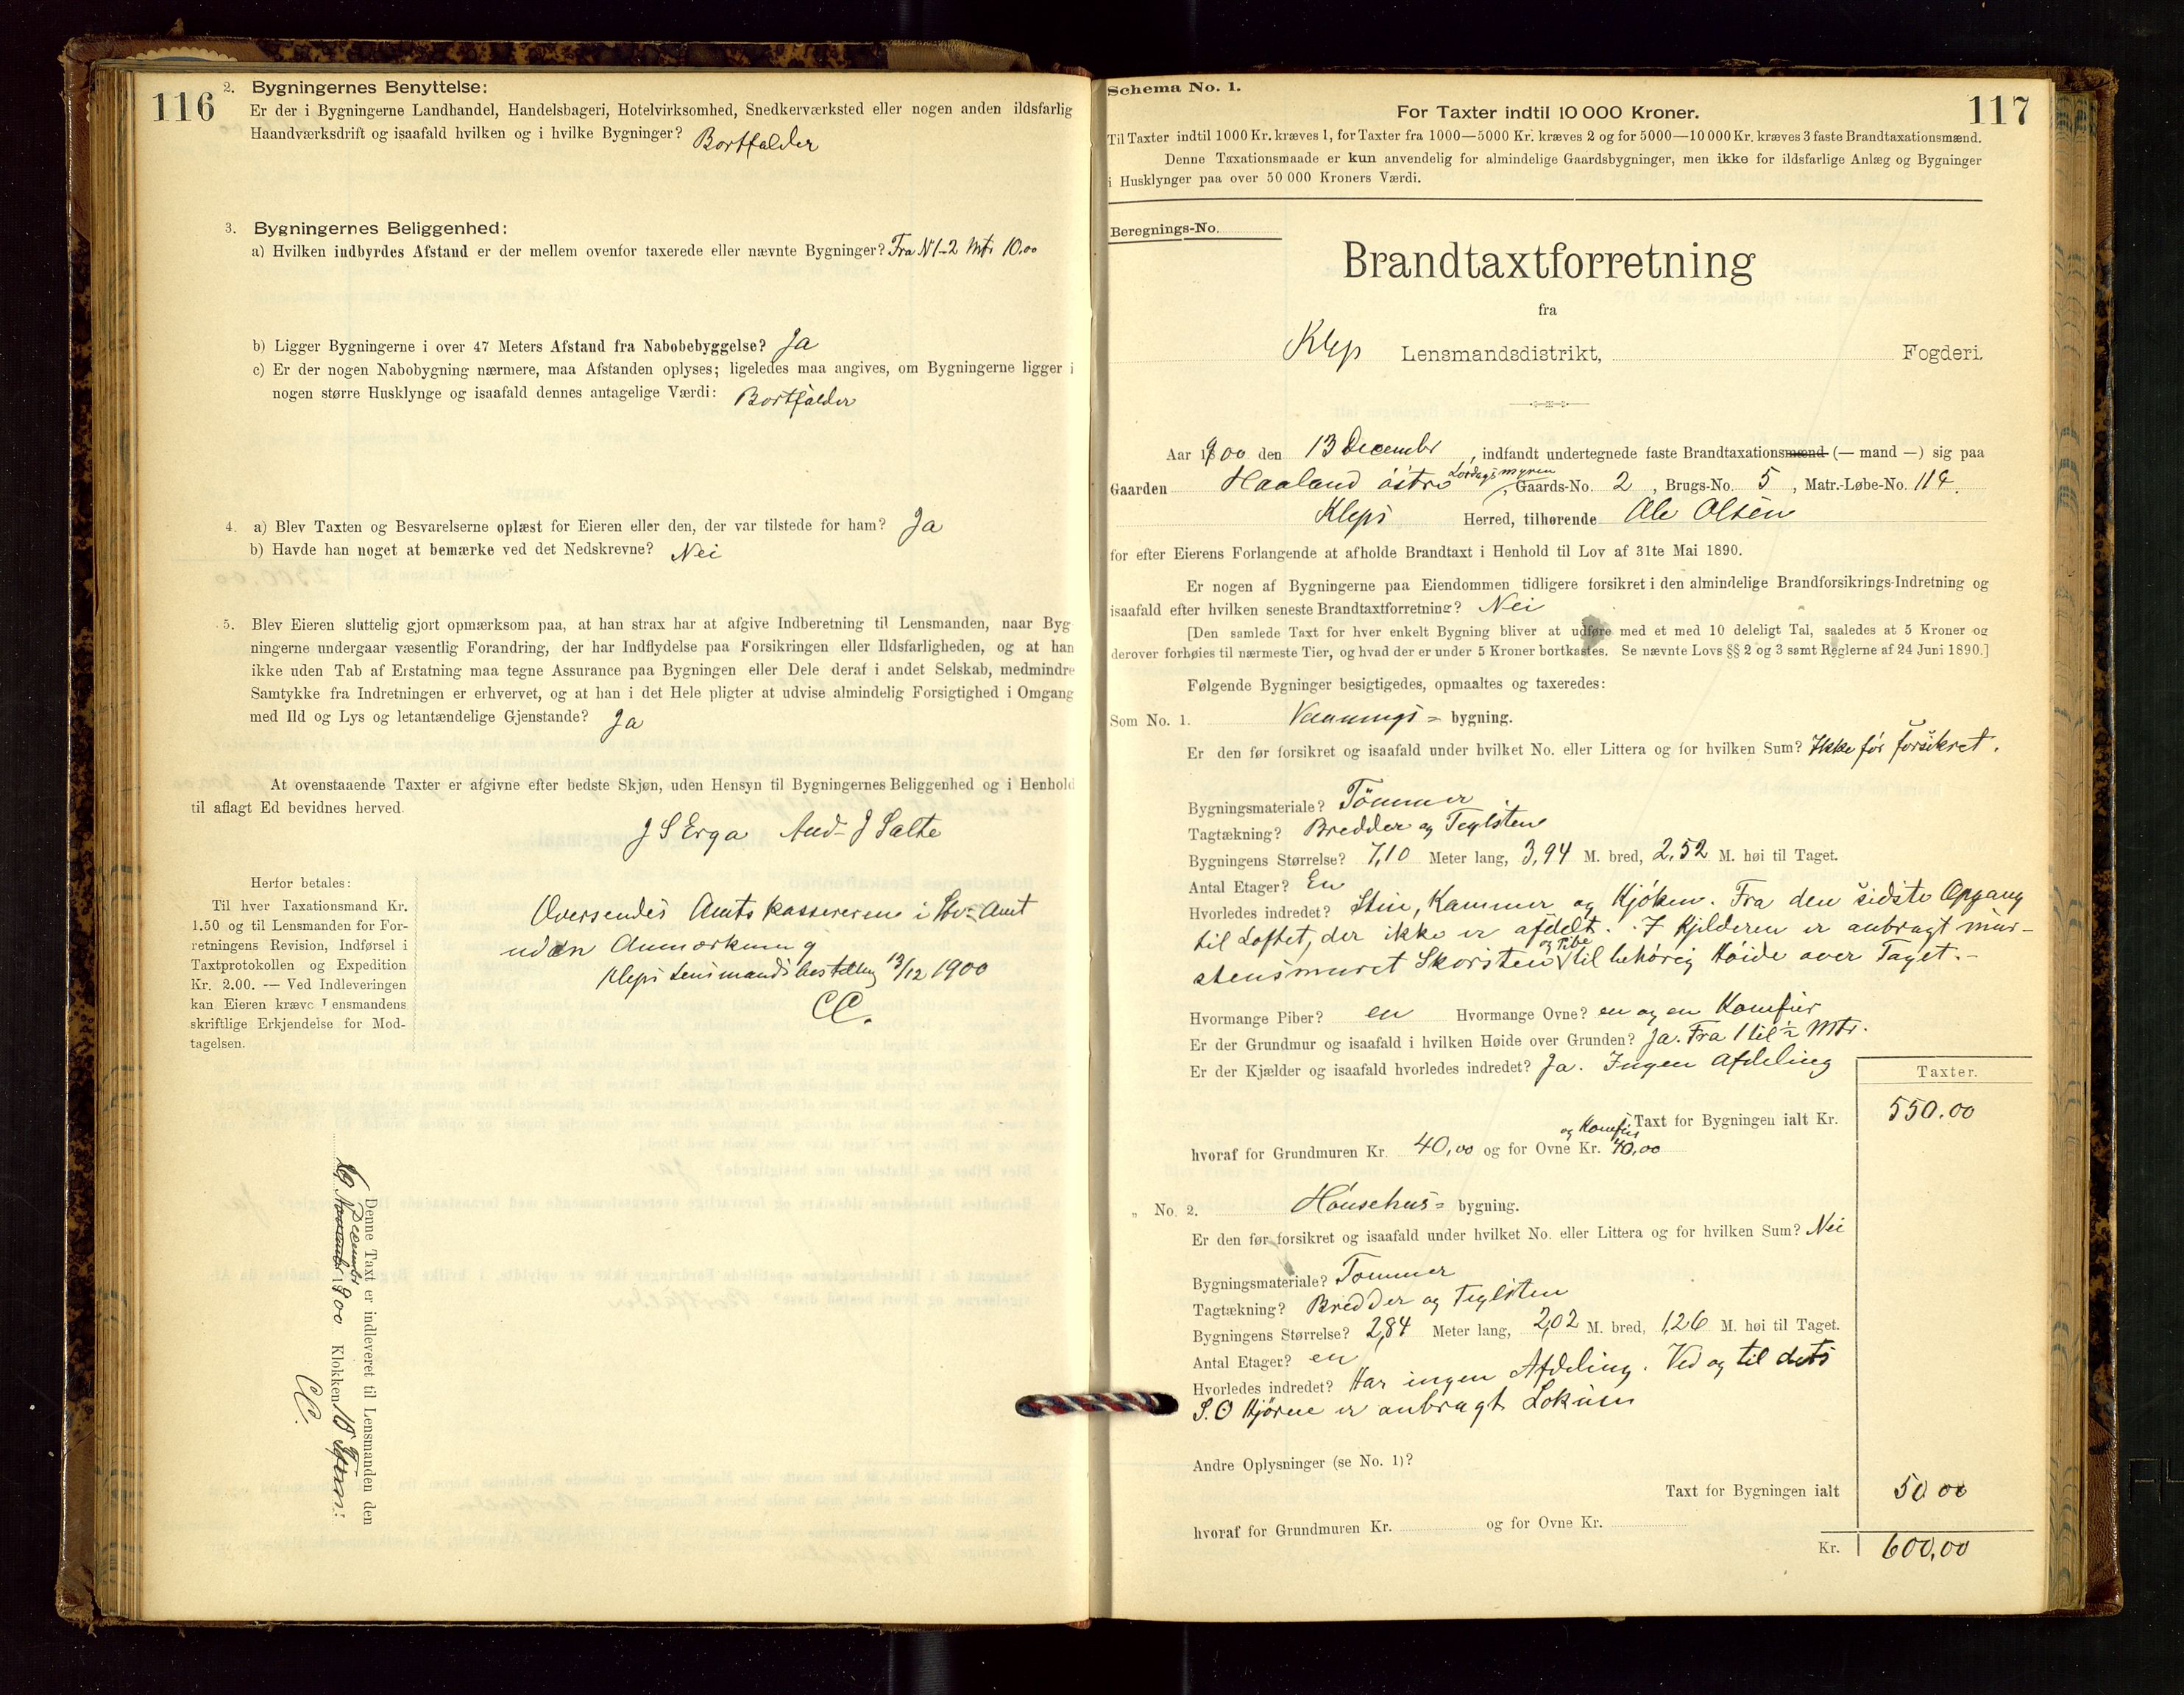 116
2. Bygningernes Benyttelse:
Er der i Bygningerne Landhandel, Handelsbageri, Hotelvirksomhed, Snedkerværksted eller nogen anden ildsfarlig
Haandværksdrift og isaafald hvilken og i hvilke Bygninger? Bortfalder
3. Bygningernes Beliggenhed:
a) Hvilken indbyrdes Afstand er der mellem ovenfor taxerede eller nævnte Bygninger? Fra N 1-2 Mtr 10.00
b) Ligger Bygningerne i over 47 Meters Afstand fra Nabobebyggelse? Ja
c) Er der nogen Nabobygning nærmere, maa Afstanden oplyses; ligeledes maa angives, om Bygningerne ligger i
nogen større Husklynge og isaafald dennes antagelige Værdi: Bortfalder
4. a) Blev Taxten og Besvarelserne oplæst for Eieren eller den, der var tilstede for ham? Ja
b) Havde han noget at bemærke ved det Nedskrevne? Nei
5. Blev Eieren sluttelig gjort opmærksom paa, at han strax har at afgive Indberetning til Lensmanden, naar Byg
ningerne undergaar væsentlig Forandring, der har Indflydelse paa Forsikringen eller Ildsfarligheden, og at han
ikke uden Tab af Erstatning maa tegne Assurance paa Bygningen eller Dele deraf i andet Selskab, medmindre
Samtykke fra Indretningen er erhvervet, og at han i det Hele pligter at udvise almindelig Forsigtighed i Omgang
med Ild og Lys og letantændelige Gjenstande? Ja
At ovenstaaende Taxter er afgivne efter bedste Skjøn, uden Hensyn til Bygningernes Beliggenhed og i Henhold
til aflagt Ed bevidnes herved.
J S Erga And- J Salte
Herfor betales:
Til hver Taxationsmand Kr.
1.50 og til Lensmanden for For-
retningens Revision, Indførsel i
Taxtprotokollen og Expedition
Kr. 2.00. — Ved Indleveringen
kan Eieren kræve Lensmandens
skriftlige Erkjendelse for Mod-
tagelsen.
Oversendes Amtskassereren i Stv- Amt
uden Anmærkning
Klep Lensmandsbestilling 13/12 1900
CC.
Denne Taxt er indleveret til Lensmanden den
December 1900 Klokken 10
CC.
117
Schema No. 1.
For Taxter indtil 10 000 Kroner.
Til Taxter indtil 1000 Kr. kræves 1, for Taxter fra 1000—5000 Kr. kræves 2 og for 5000—10 000 Kr. kræves 3 faste Brandtaxationsmænd.
Denne Taxationsmaade er kun anvendelig for almindelige Gaardsbygninger, men ikke for ildsfarlige Anlæg og Bygninger
i Husklynger paa over 50 000 Kroners Værdi.
Beregnings-No.
Brandtaxtforretning
fra
Klep Lensmandsdistrikt, Fogderi.
Aar 1900 den 13 Decembr, indfandt undertegnede faste Brandtaxationsmænd (— mand —) sig paa
Gaarden Haaland östre Lordagsmyren, Gaards-No. 2, Brugs-No. 5, Matr.-Løbe-No. 114.
Kleps Herred, tilhørende Ole Olsen
for efter Eierens Forlangende at afholde Brandtaxt i Henhold til Lov af 31te Mai 1890.
Er nogen af Bygningerne paa Eiendommen tidligere forsikret i den almindelige Brandforsikrings-Indretning og
isaafald efter hvilken seneste Brandtaxtforretning? Nei
[Den samlede Taxt for hver enkelt Bygning bliver at udføre med et med 10 deleligt Tal, saaledes at 5 Kroner og
derover forhøies til nærmeste Tier, og hvad der er under 5 Kroner bortkastes. Se nævnte Lovs §§ 2 og 3 samt Reglerne af 24 Juni 1890.]
Følgende Bygninger besigtigedes, opmaaltes og taxeredes:
Som No. 1. Vaanings- bygning.
Er den før forsikret og isaafald under hvilket No. eller Littera og for hvilken Sum? Ikke før forsikret.
Bygningsmateriale? Tömmer
Tagtækning? Bredder og Teglsten
Bygningens Størrelse? 7,10 Meter lang, 3,94 M. bred, 2,52 M. høi til Taget.
Antal Etager? En
Hvorledes indredet? Stue, Kammer og Kjøken. Fra den sidste Opgang
til Loftet, der ikke er afdelt. I Kjelderen er anbragt mur-
stensmuret Skorsten og Pibe til behørig Høide over Taget.-
Hvormange Piber? en Hvormange Ovne? en og en Komfur
Er der Grundmur og isaafald i hvilken Høide over Grunden? Ja. Fra 1 til ½ Mtr.
Er der Kjælder og isaafald hvorledes indredet? Ja. Ingen Afdeling
Taxter.
Taxt for Bygningen ialt Kr. 550.00
hvoraf for Grundmuren Kr. 40,00 og for Ovne og Komfur Kr. 40,00
" No. 2. Hönsehus- bygning.
Er den før forsikret og isaafald under hvilket No. eller Littera og for hvilken Sum? Nei
Bygningsmateriale? Tømmer
Tagtækning? Bredder og Teglsten
Bygningens Størrelse? 2,84 Meter lang, 2,02 M. bred, 1,26 M. høi til Taget.
Antal Etager? en
Hvorledes indredet? Har ingen Afdeling. Ved og til dets
S.O Hjørne er anbragt Lokum
Andre Oplysninger (se No. 1)?
Taxt for Bygningen ialt 50 00
hvoraf for Grundmuren Kr. og for Ovne Kr.
Kr. 600,00